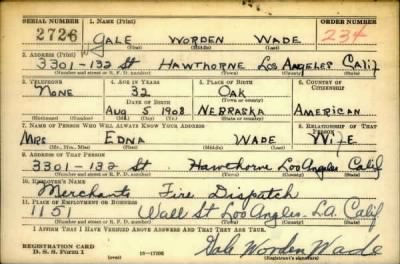 SERIAL NUMBER 1. NAME (Print) ORDER NUMBER
2726 GALE WORDEN WADE 234
(First) (Middle) (Last)
2. ADDRESS (Print)
3301-132 St HAWTHORNE LOS ANGELES CALIF
(Number and street or R. F. D. number) (Town) (County) (State)
3. TELEPHONE 4. AGE IN YEARS 5. PLACE OF BIRTH 6. COUNTRY OF CITIZENSHIP
NONE 32 OAK
DATE OF BIRTH (Town or county)
AUG 5 1908 NEBRASKA AMERICAN
(Mo.) (Day) (Yr.) (State or country)
7. NAME OF PERSON WHO WILL ALWAYS KNOW YOUR ADDRESS 8. RELATIONSHIP OF THAT PERSON
MRS EDNA WADE WIFE
(Mr., Mrs., Miss) (First) (Middle) (Last)
9. ADDRESS OF THAT PERSON
3301-132 St Hawthorne Los Angeles Calif
(Number and street or R. F. D. number) (Town) (County) (State)
10. EMPLOYER'S NAME
Merchants Fire Dispatch
11. PLACE OF EMPLOYMENT OR BUSINESS
1151 Wall St Los Angeles-LA. Calif
(Number and street or R. F. D. number) (Town) (County) (State)
I AFFIRM THAT I HAVE VERIFIED ABOVE ANSWERS AND THAT THEY ARE TRUE.
REGISTRATION CARD
D. S. S. Form 1 (over) 16—17105 Gale Worden Wade
(Registrant's signature)